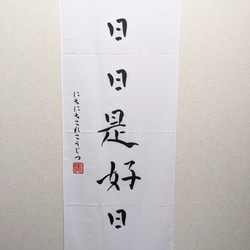 日日是好日
にちにちこれこうじつ